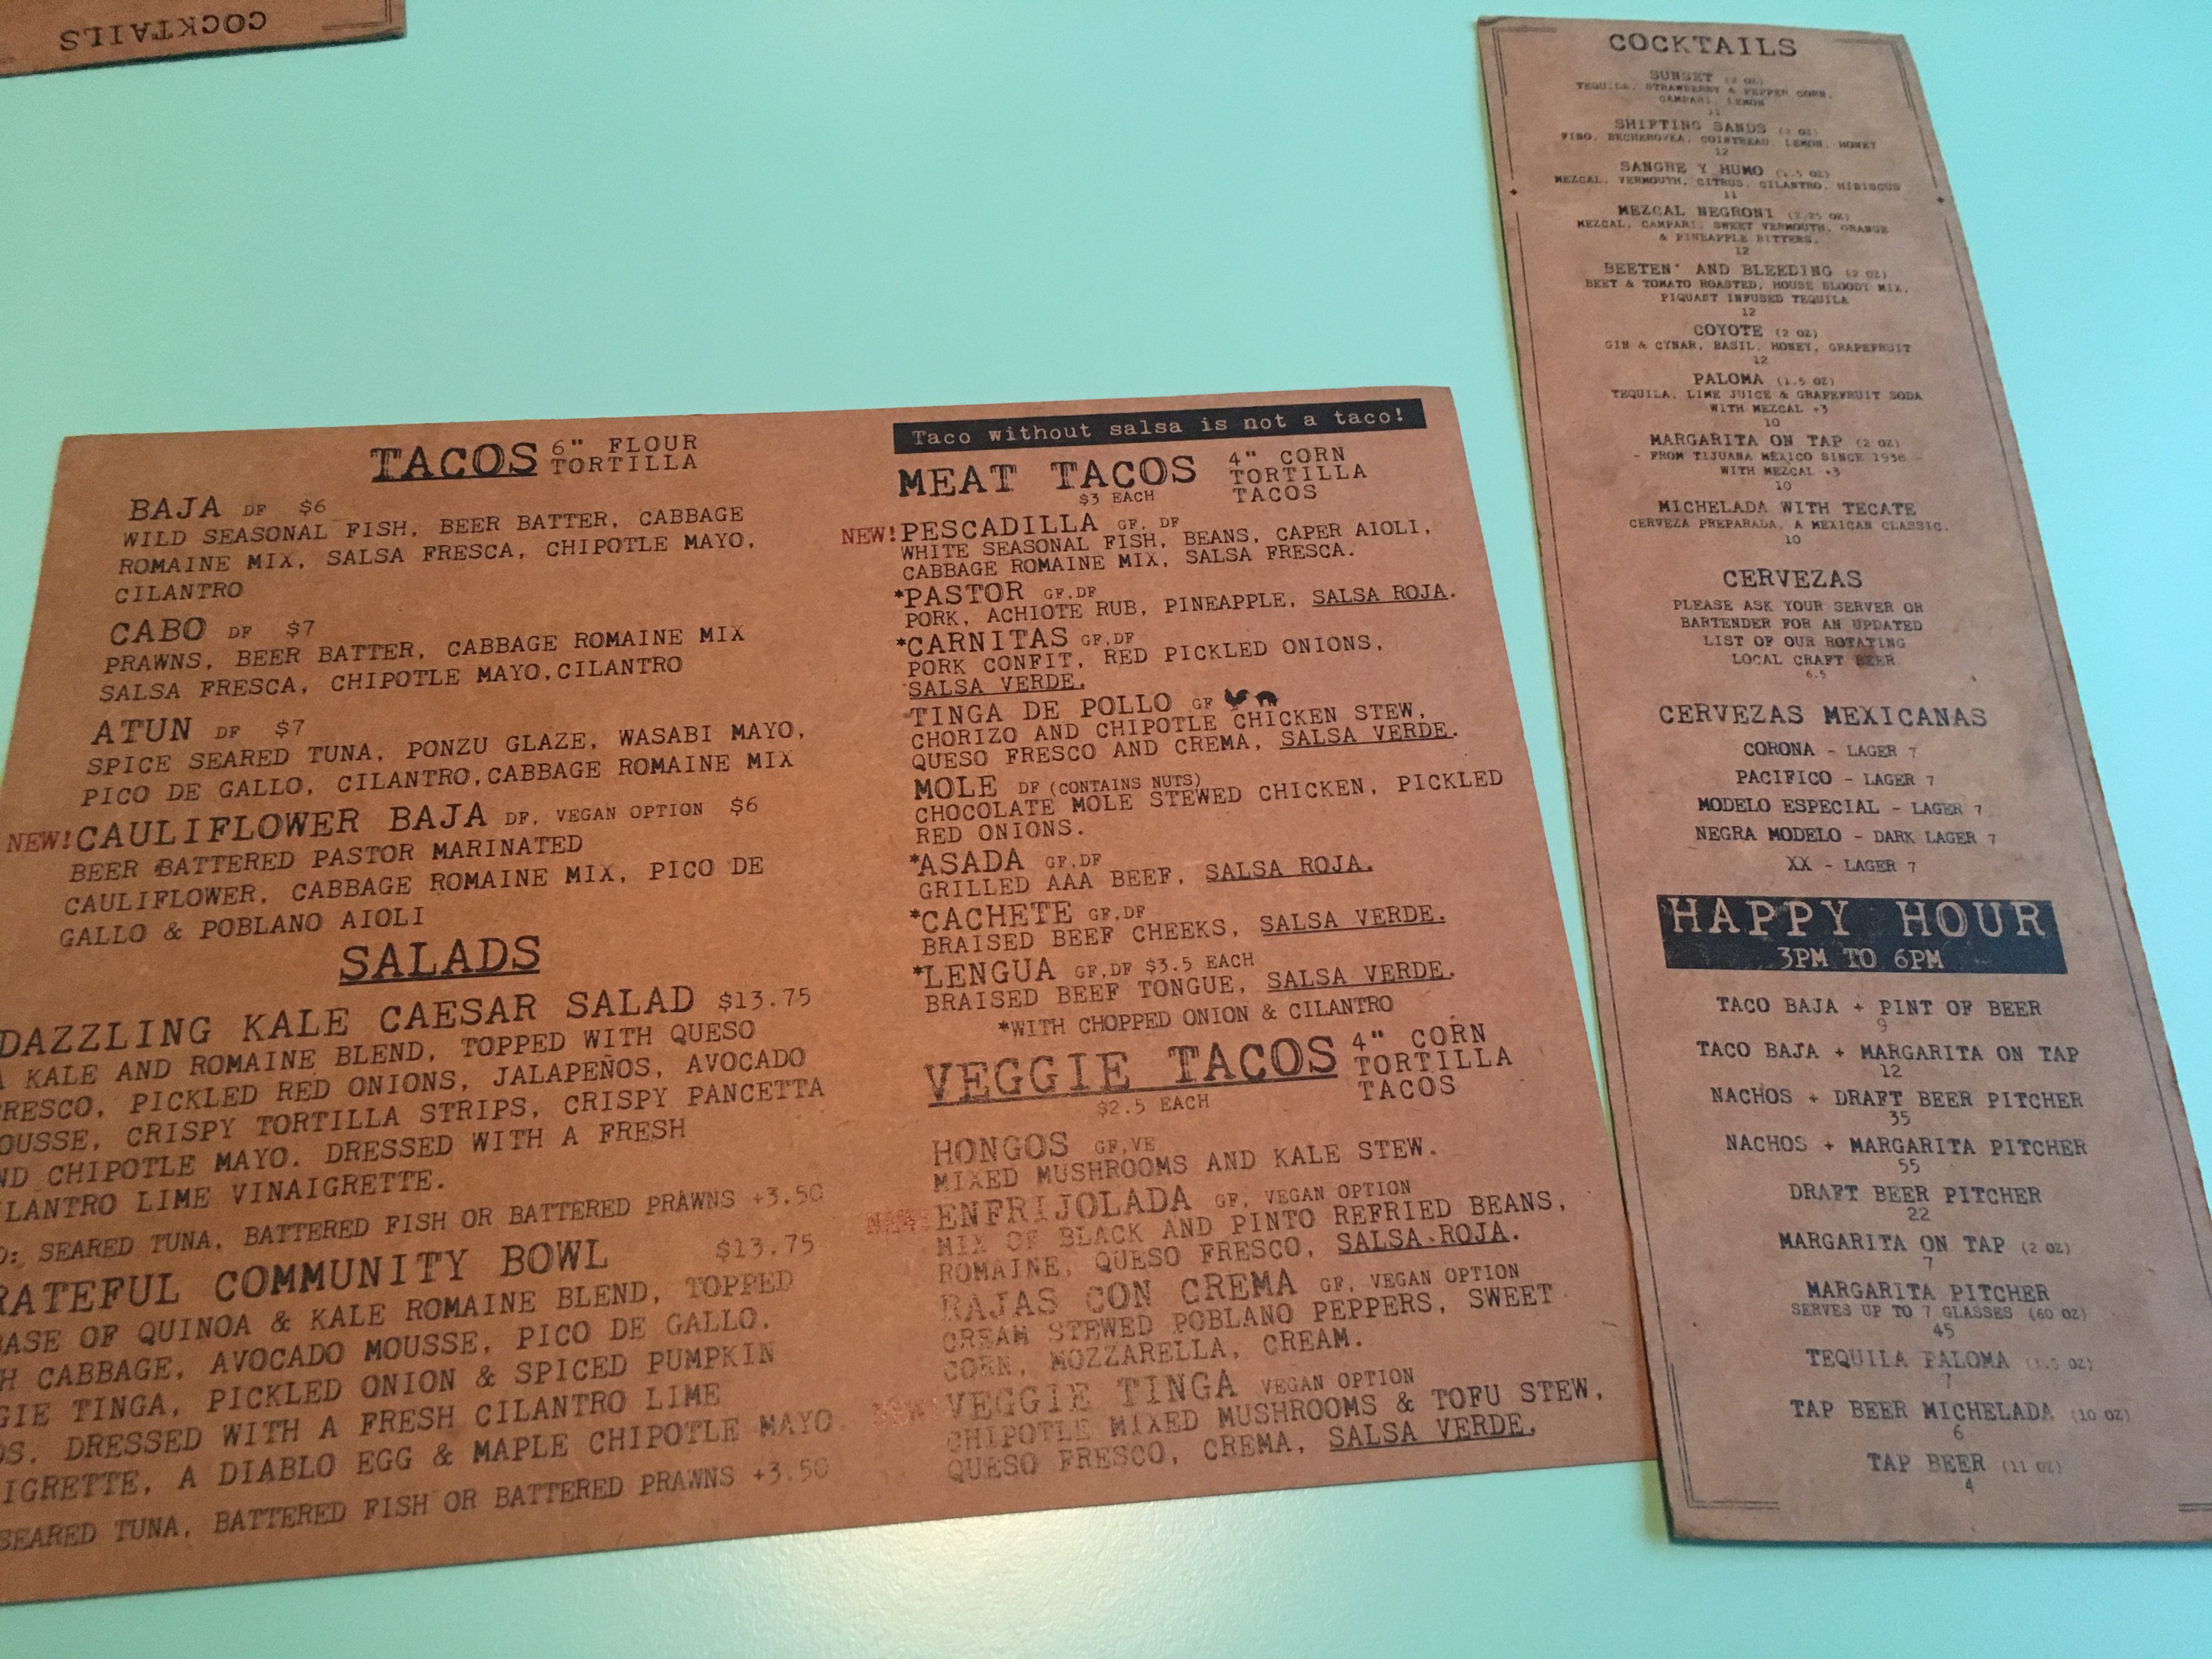 COCKTAILS
TACOS 6" FLOUR
TORTILLA
BAJA DF $6
WILD SEASONAL FISH, BEER BATTER, CABBAGE
ROMAINE MIX, SALSA FRESCA, CHIPOTLE MAYO,
CILANTRO
CABO DF $7
PRAWNS, BEER BATTER, CABBAGE ROMAINE MIX
SALSA FRESCA, CHIPOTLE MAYO,CILANTRO
ATUN DF $7
SPICE SEARED TUNA, PONZU GLAZE, WASABI MAYO,
PICO DE GALLO, CILANTRO,CABBAGE ROMAINE MIX
NEW!CAULIFLOWER BAJA DF, VEGAN OPTION $6
BEER BATTERED PASTOR MARINATED
CAULIFLOWER, CABBAGE ROMAINE MIX, PICO DE
GALLO & POBLANO AIOLI
SALADS
DAZZLING KALE CAESAR SALAD $13.75
A KALE AND ROMAINE BLEND, TOPPED WITH QUESO
RESCO, PICKLED RED ONIONS, JALAPEÑOS, AVOCADO
OUSSE, CRISPY TORTILLA STRIPS, CRISPY PANCETTA
ND CHIPOTLE MAYO. DRESSED WITH A FRESH
LANTRO LIME VINAIGRETTE.
D: SEARED TUNA, BATTERED FISH OR BATTERED PRAWNS +3.50
RATEFUL COMMUNITY BOWL $13.75
BASE OF QUINOA & KALE ROMAINE BLEND, TOPPED
H CABBAGE, AVOCADO MOUSSE, PICO DE GALLO,
GIE TINGA, PICKLED ONION & SPICED PUMPKIN
DS. DRESSED WITH A FRESH CILANTRO LIME
IGRETTE, A DIABLO EGG & MAPLE CHIPOTLE MAYO.
SEARED TUNA, BATTERED FISH OR BATTERED PRAWNS +3.50
Taco without salsa is not a taco!
MEAT TACOS 4" CORN
TORTILLA
$3 EACH TACOS
NEW!PESCADILLA GF, DF
WHITE SEASONAL FISH, BEANS, CAPER AIOLI,
CABBAGE ROMAINE MIX, SALSA FRESCA.
*PASTOR GF,DF
PORK, ACHIOTE RUB, PINEAPPLE, SALSA ROJA.
*CARNITAS GF,DF
PORK CONFIT, RED PICKLED ONIONS,
SALSA VERDE.
TINGA DE POLLO GF
CHORIZO AND CHIPOTLE CHICKEN STEW,
QUESO FRESCO AND CREMA, SALSA VERDE.
MOLE DF (CONTAINS NUTS)
CHOCOLATE MOLE STEWED CHICKEN, PICKLED
RED ONIONS.
*ASADA GF,DF
GRILLED AAA BEEF, SALSA ROJA.
*CACHETE GF,DF
BRAISED BEEF CHEEKS, SALSA VERDE.
*LENGUA GF,DF $3.5 EACH
BRAISED BEEF TONGUE, SALSA VERDE.
*WITH CHOPPED ONION & CILANTRO
VEGGIE TACOS 4" CORN
TORTILLA
TACOS
$2.5 EACH
HONGOS GF,VE
MIXED MUSHROOMS AND KALE STEW.
NEW!ENFRIJOLADA GF, VEGAN OPTION
MIX OF BLACK AND PINTO REFRIED BEANS,
ROMAINE, QUESO FRESCO, SALSA ROJA.
RAJAS CON CREMA GF, VEGAN OPTION
CREAM STEWED POBLANO PEPPERS, SWEET
CORN, MOZZARELLA, CREAM.
NEW!VEGGIE TINGA VEGAN OPTION
CHIPOTLE MIXED MUSHROOMS & TOFU STEW,
QUESO FRESCO, CREMA, SALSA VERDE.
COCKTAILS
SUNSET (2 OZ)
TEQUILA, STRAWBERRY & PEPPER CORN,
CAMPARI, LEMON
11
SHIFTING SANDS (2 OZ)
FINO, BECHEROVKA, COINTREAU, LEMON, HONEY
12
SANGRE Y HUMO (1.5 OZ)
MEZCAL, VERMOUTH, CITRUS, CILANTRO, HIBISCUS
11
MEZCAL NEGRONI (2.25 OZ)
MEZCAL, CAMPARI, SWEET VERMOUTH, ORANGE
& PINEAPPLE BITTERS.
12
BEETEN' AND BLEEDING (2 OZ)
BEET & TOMATO ROASTED, HOUSE BLOODY MIX,
PIQUANT INFUSED TEQUILA
12
COYOTE (2 OZ)
GIN & CYNAR, BASIL, HONEY, GRAPEFRUIT
12
PALOMA (1.5 OZ)
TEQUILA, LIME JUICE & GRAPEFRUIT SODA
WITH MEZCAL +3
10
MARGARITA ON TAP (2 OZ)
- FROM TIJUANA MEXICO SINCE 1938 -
WITH MEZCAL +3
10
MICHELADA WITH TECATE
CERVEZA PREPARADA, A MEXICAN CLASSIC.
10
CERVEZAS
PLEASE ASK YOUR SERVER OR
BARTENDER FOR AN UPDATED
LIST OF OUR ROTATING
LOCAL CRAFT BEER
6.5
CERVEZAS MEXICANAS
CORONA - LAGER 7
PACIFICO - LAGER 7
MODELO ESPECIAL - LAGER 7
NEGRA MODELO - DARK LAGER 7
XX - LAGER 7
HAPPY HOUR
3PM TO 6PM
TACO BAJA + PINT OF BEER
9
TACO BAJA + MARGARITA ON TAP
12
NACHOS + DRAFT BEER PITCHER
35
NACHOS + MARGARITA PITCHER
55
DRAFT BEER PITCHER
22
MARGARITA ON TAP (2 OZ)
7
MARGARITA PITCHER
SERVES UP TO 7 GLASSES (60 OZ)
45
TEQUILA PALOMA (1.5 OZ)
7
TAP BEER MICHELADA (10 OZ)
6
TAP BEER (11 OZ)
4